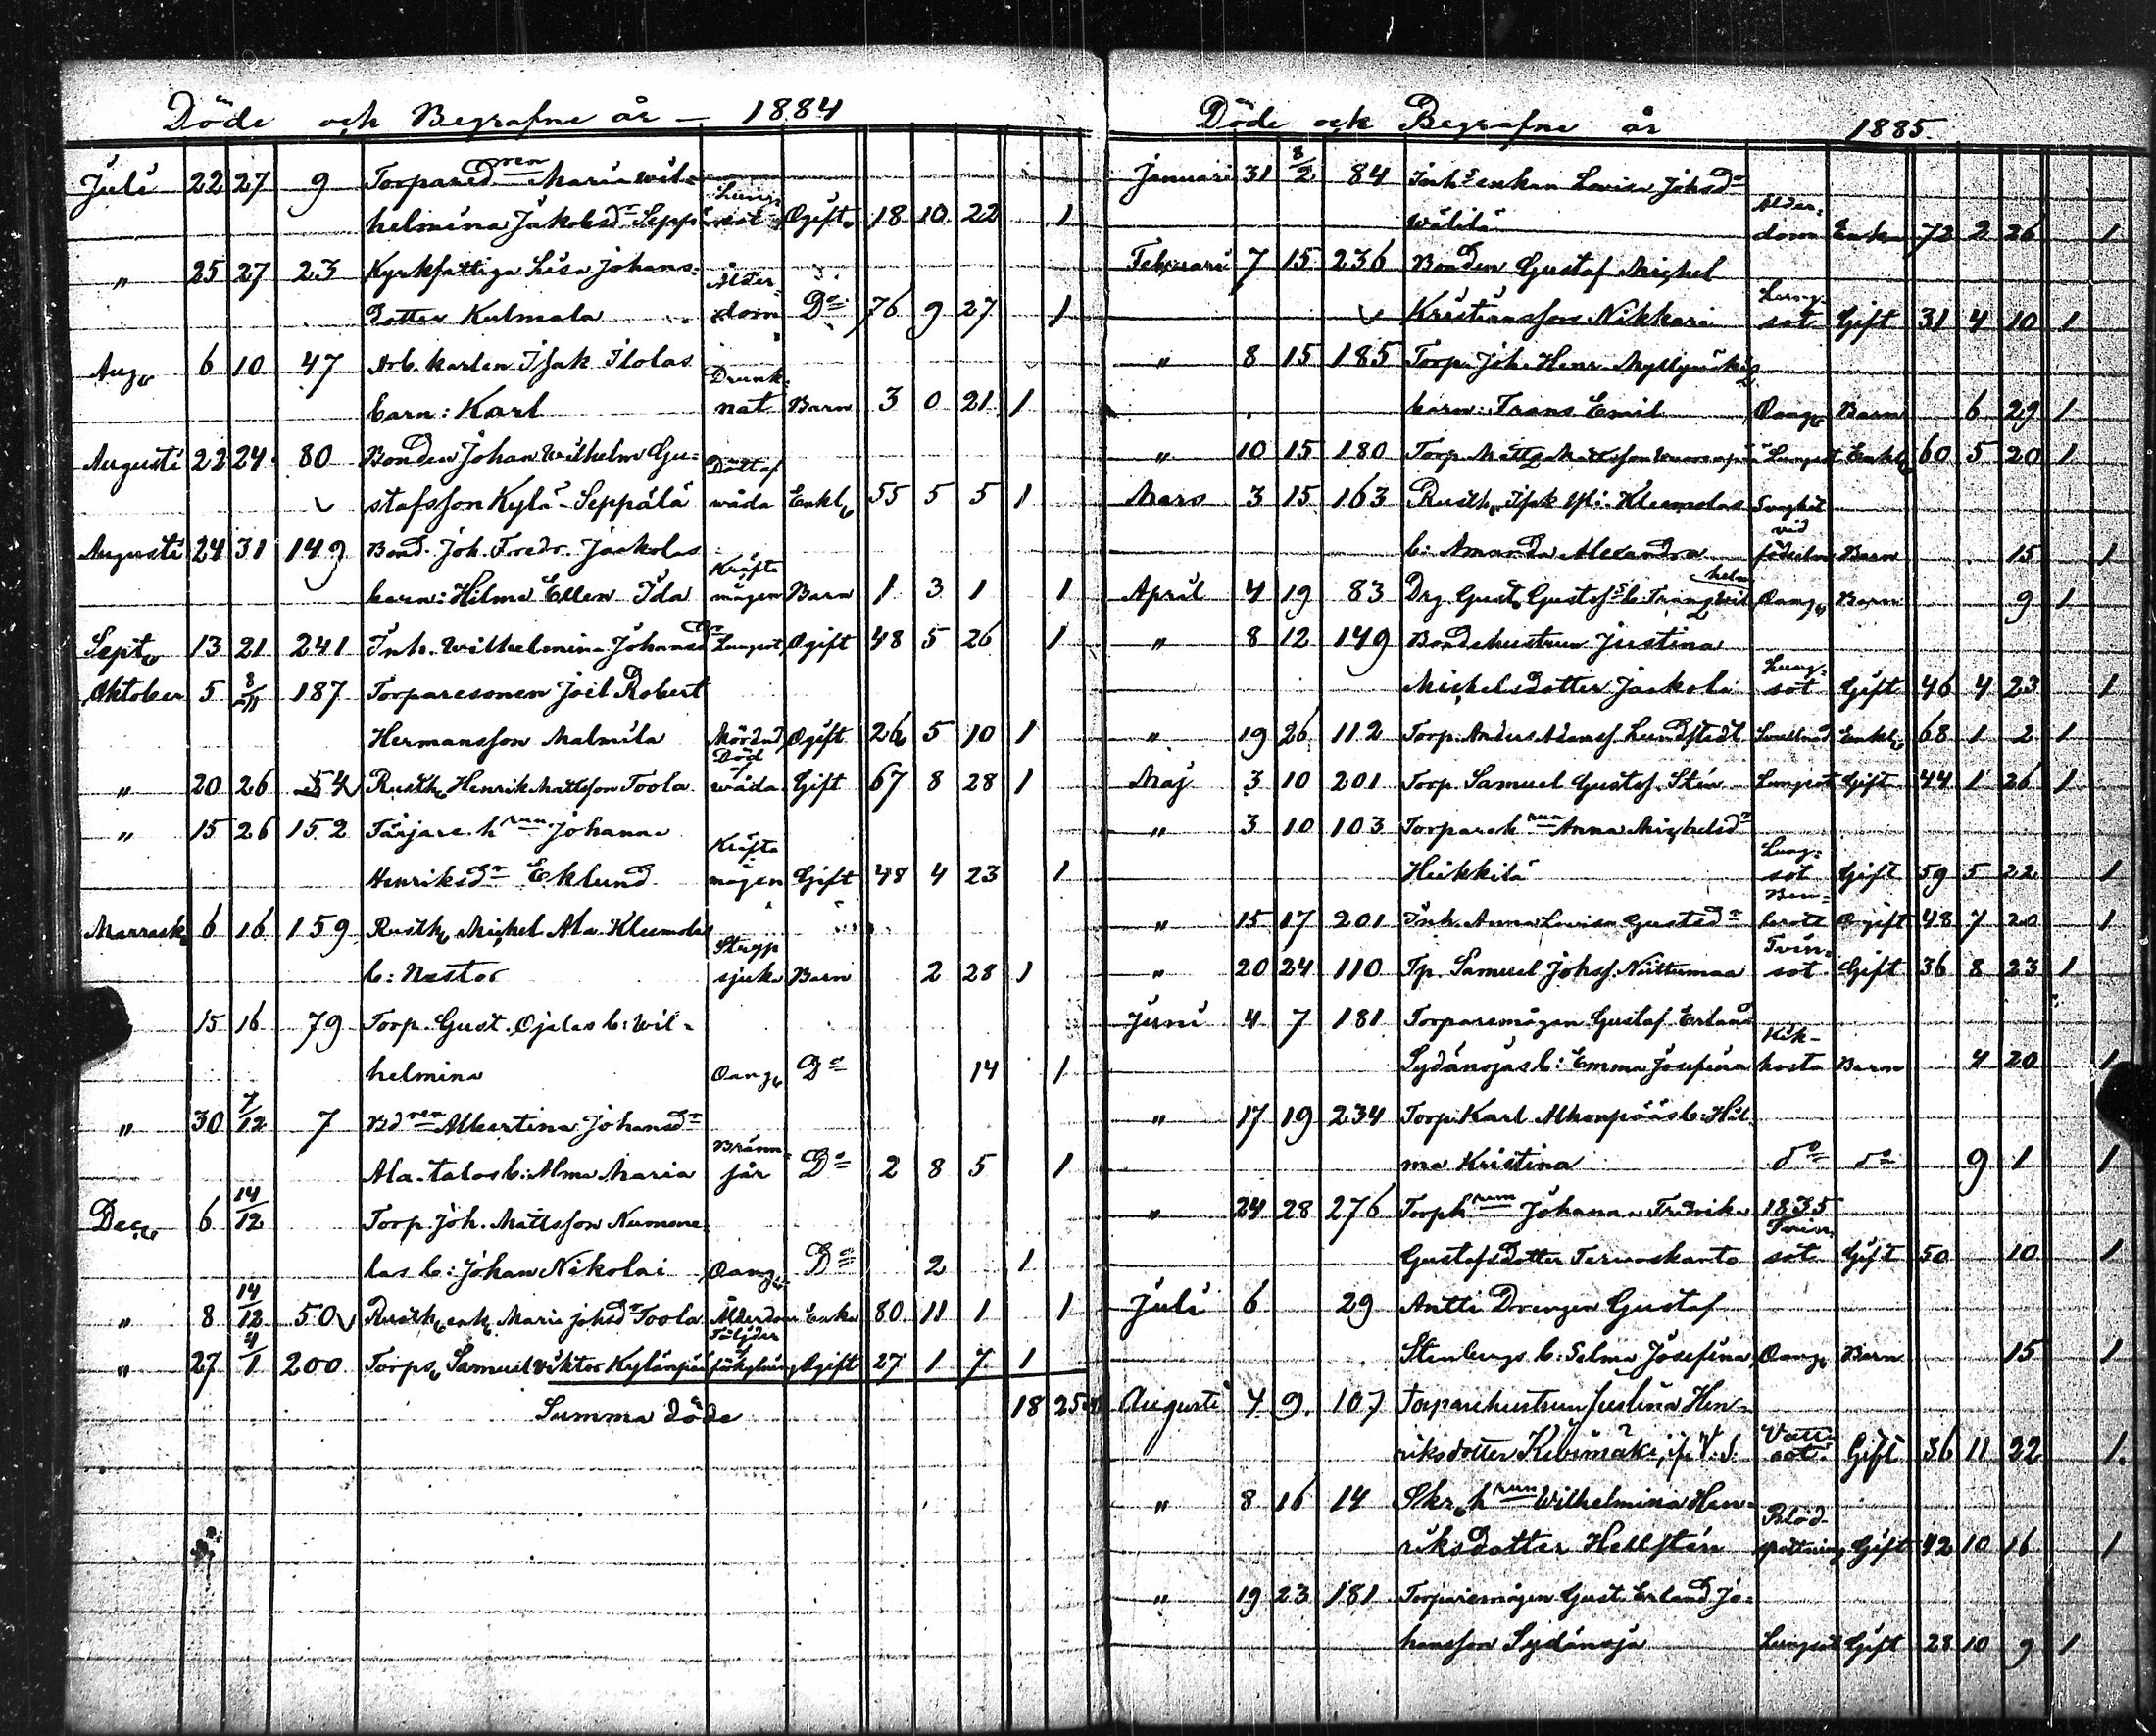 Döde och Begrafne år – 1884
Juli 22 27 9 Torpared:ren Maria Wil-
helmina Jakobsd:r Seppä Lung-sot Ogift 18 10 22 1
" 25 27 23 Kyrkfattiga Lisa Johans-
dotter Kulmala Ålder-dom D:o 76 9 27 1
Aug. 6 10 47 Arb. karlen Isak Ilolas
barn: Karl Drunk-nat Barn 3 0 21 1
Augusti 22 24 80 Bonden Johan Wilhelm Gu-
stafsson Kylä-Seppälä Död af wåda Enkl. 55 5 5 1
Augusti 24 31 149 Bond. Joh. Fredr. Jaakolas
barn: Hilma Ellen Ida Kräfta i magen Barn 1 3 1 1
Sept. 13 21 241 Inh. Wilhelmina Johansd:r Lungsot Ogift 48 5 26 1
Oktober 5 8/11 187 Torparesonen Joel Robert
Hermansson Malmila Mördad Ogift 26 5 10 1
" 20 26 54 Rusth. Henrik Mattsson Toola Död af wåda Gift 67 8 28 1
" 15 26 152 Färjare h:run Johanna
Henriksd:r Eklund Kräfta i magen Gift 48 4 23 1
Marrask. 6 16 159 Rusth. Michel Ala Kleemolas
b: Nestor Strypsjuka Barn 2 28 1
15 16 79 Torp. Gust. Ojalas b: Wil-
helmina Oang. D:o 14 1
" 30 7/12 7 Bd:ren Albertina Johansd:r
Ala-talos b: Alma Maria Bränn-sår D:o 2 8 5 1
Dec. 6 14/12 Torp. Joh. Mattsson Numme-
las b: Johan Nikolai Oang. D:o 2 1
" 8 14/12 50 Rusth. enk. Maria Johsd:r Toola Ålderdom Enka 80 11 1 1
" 27 4/1 200 Torps. Samuel Viktor Kylänpää Följder af förkylning Ogift 27 1 7 1
Summa döde 18 25
Döde och Begrafne år 1885
Januari 31 8/2 84 Inh:s enkan Lovisa Johsd:r
Wälilä Ålder-dom Enka 72 2 26 1
Februari 7 15 236 Bonden Gustaf Michel
Kristiansson Nikkari Lung-sot Gift 31 4 10 1
" 8 15 185 Torp. Joh. Henr. Myllymäkis
barn: Frans Emil Oang. Barn 6 29 1
" 10 15 180 Torp. Matts Mattsson Lungsot Enkl. 60 5 20 1
Mars 3 15 163 Rusth. Isak Yli-Kleemolas
b: Amanda Alexandra Svaghet vid födseln Barn 15 1
April 4 19 83 Drg. Gust. Gustafs:s b: Frans Wilhelm Oang. Barn 9 1
" 8 12 149 Bondehustrun Justina
Michelsdotter Jaakola Lung-sot Gift 46 4 23 1
" 19 26 112 Torp. Anders Adamss. Lundstedt Enkl. 68 1 2 1
Maj 3 10 201 Torp. Samuel Gustafs. Stén Lungsot Gift 44 1 26 1
" 3 10 103 Torpareh:run Anna Michelsd:r
Heikkilä Lung-sot Gift 59 5 22 1
" 15 17 201 Inh. Anna Lovisa Gustsd:r Ben-brott Ogift 48 7 20 1
" 20 24 110 Tp. Samuel Johss. Niittumaa Tvin-sot Gift 36 8 23 1
Juni 4 7 181 Torparemågen Gustaf Erland
Sydänojas b: Emma Josefina Kik-hosta Barn 4 20 1
" 17 19 234 Torp. Karl Alhonpääs b: Hil-
ma Kristina d:o d:o 9 1 1
" 24 28 276 Torph:run Johanna Fredrika 1835
Gustafsdotter Tervaskanto Tvin-sot Gift 50 10 1
Juli 6 29 Antti Drengen Gustaf
Stenbergs b: Selma Josefina Oang. Barn 15 1
Augusti 4 9 107 torparehustrun Justina Hen-
riksdotter Kivimäki, Vatt-sot Gift 36 11 22 1
" 8 16 14 Skr. h:run Wilhelmina Hen-
riksdotter Hellstén Blod-spottning Gift 42 10 16 1
" 19 23 181 Torparemågen Gust. Erland Jo-
hansson Sydänoja Lungsot Gift 28 10 9 1